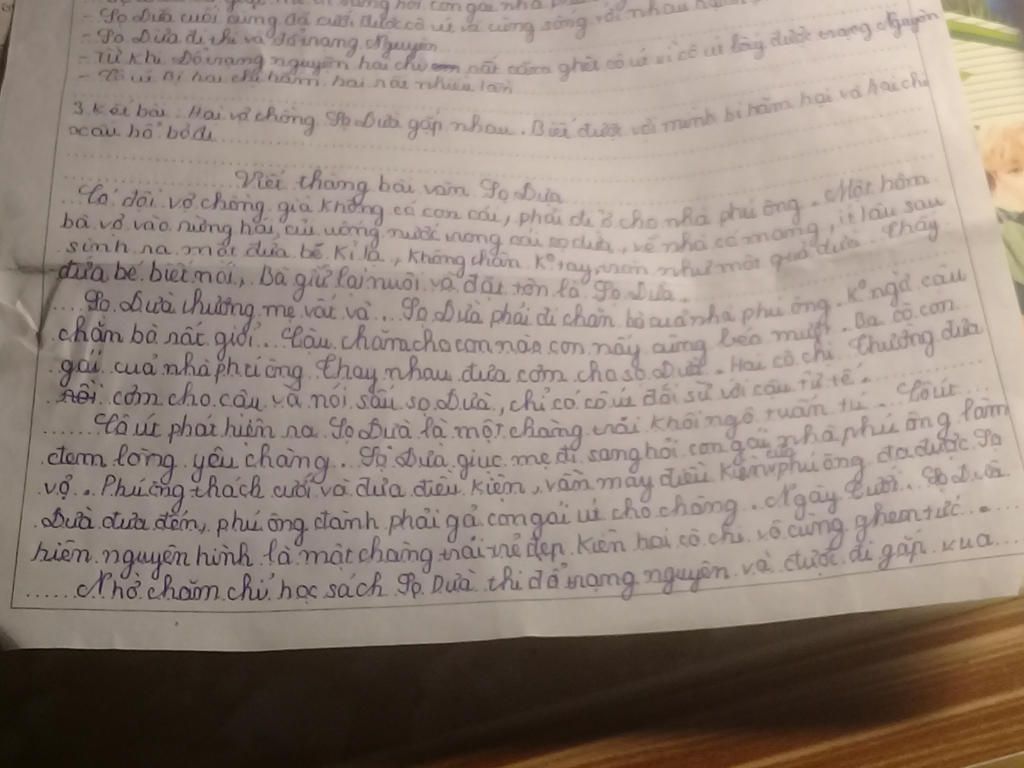 - Sọ Dừa cuối cùng đã cưới được cô út và cùng sống với nhau
- Sọ Dừa đi thi và đỗ trạng Nguyên
- Từ khi Đỗ trạng nguyên hai chị rất căm ghét cô út vì cô út lấy được trạng Nguyên
- Cô út Bị hai chị hãm hại rất nhiều lần
3. Kết bài: Hai vợ chồng Sọ Dừa gặp nhau. Biết được vợ mình bị hãm hại và hai chị
xấu hổ bỏ đi
Viết thàng bài văn Sọ Dừa
Có đôi vợ chồng già không có con cái, phải đi ở cho nhà phú ông. Một hôm
bà vợ vào rừng hái củi uống nước trong cái sọ dừa, về nhà có mang, ít lâu sau
sinh ra một đứa bé kì lạ, không chân k° tay, tròn như một quả dừa. Thấy
đứa bé biết nói, Bà giữ lại nuôi và đặt tên là Sọ Dừa.
Sọ Dừa thương mẹ vất vả. Sọ Dừa phải đi chăn bò cuả nhà phú ông. K° ngờ cậu
chăn bò rất giỏi. Cậu chăm cho con nào con nấy cũng béo mượt. Ba cô con
gái cuả nhà phú ông thay nhau đưa cơm cho sọ Dừa. Hai cô chị thường đưa
cơm cho cậu và nói sấu sọ Dừa, chỉ có cô út đối sử với cậu tử tế.
Cô út phát hiện ra Sọ Dừa là một chàng trai khôi ngô tuấn tú. Cô út
đem lòng yêu chàng. Sọ Dừa giục mẹ đi sang hỏi con gái nhà phú ông làm
vợ. Phú ông thách cưới và đưa điều kiện, vần mấy điều kiện của phú ông đã được Sọ
Dừa đưa đến, phú ông đành phải gả con gái út cho chàng. Ngày cưới Sọ Dừa
hiện nguyên hình là một chàng trai trẻ đẹp kiến hai cô chị vô cùng ghen tức.
Nhờ chăm chỉ học sách Sọ Dừa thi đỗ trạng nguyên và được đi gặp vua